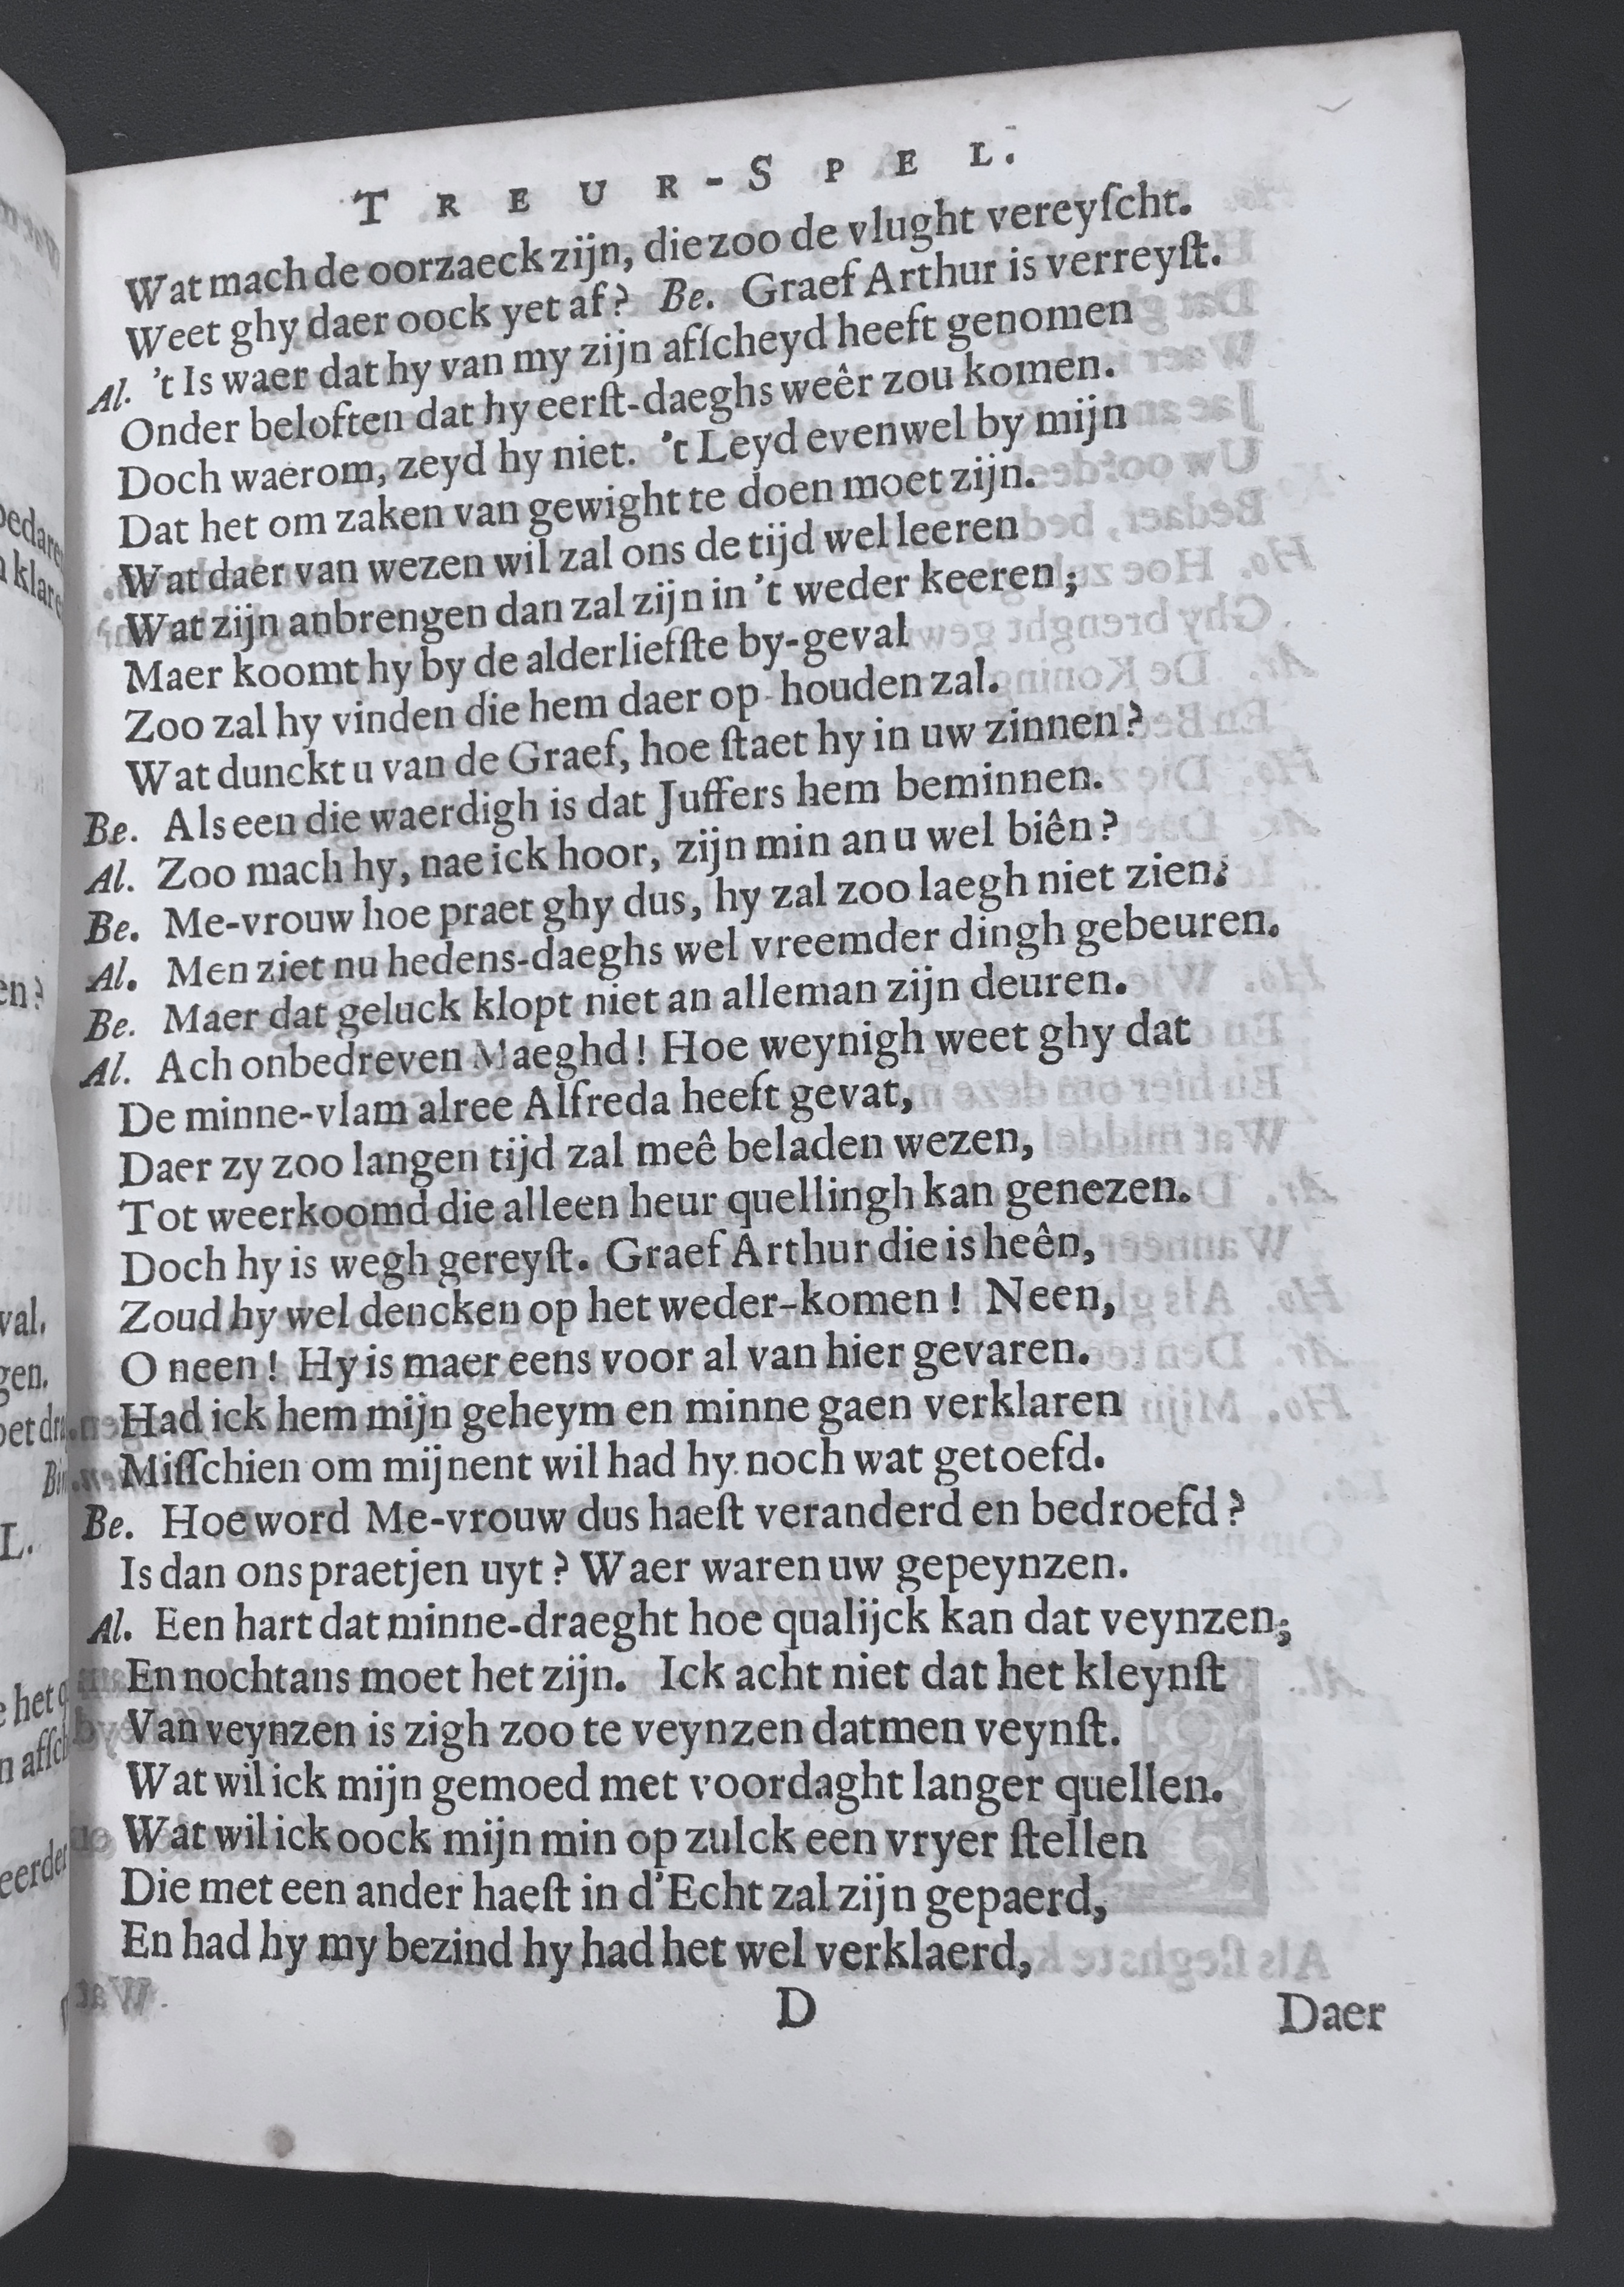 TREUR-SPEL.
Wat mach de oorzaeck zijn, die zoo de vlught vereyſcht.
Weet ghy daer oock yet af? Be. Graef Arthur is verreyſt.
Al. 't Is waer dat hy van my zijn afſcheyd heeft genomen
Onder beloften dat hy eerſt-daeghs weêr zou komen.
Doch waerom, zeyd hy niet. 't Leyd evenwel by mijn
Dat het om zaken van gewight te doen moet zijn.
Wat daer van wezen wil zal ons de tijd wel leeren
Wat zijn anbrengen dan zal zijn in 't weder keeren;
Maer koomt hy by de alderliefſte by-geval
Zoo zal hy vinden die hem daer op-houden zal.
Wat dunckt u van de Graef, hoe ſtaet hy in uw zinnen?
Be. Als een die waerdigh is dat Juffers hem beminnen.
Al. Zoo mach hy, nae ick hoor, zijn min an u wel biên?
Be. Me-vrouw hoe praet ghy dus, hy zal zoo laegh niet zien.
Al. Men ziet nu hedens-daeghs wel vreemder dingh gebeuren.
Be. Maer dat geluck klopt niet an alleman zijn deuren.
Al. Ach onbedreven Maeghd! Hoe weynigh weet ghy dat
De minne-vlam alree Alfreda heeft gevat,
Daer zy zoo langen tijd zal meê beladen wezen,
Tot weerkoomd die alleen heur quellingh kan genezen.
Doch hy is wegh gereyſt. Graef Arthur die is heên,
Zoud hy wel dencken op het weder-komen! Neen,
O neen! Hy is maer eens voor al van hier gevaren.
Had ick hem mijn geheym en minne gaen verklaren
Miſſchien om mijnent wil had hy noch wat getoefd.
Be. Hoe word Me-vrouw dus haeſt veranderd en bedroefd?
Is dan ons praetjen uyt? Waer waren uw gepeynzen.
Al. Een hart dat minne-draeght hoe qualijck kan dat veynzen;
En nochtans moet het zijn. Ick acht niet dat het kleynſt
Van veynzen is zigh zoo te veynzen datmen veynſt.
Wat wil ick mijn gemoed met voordaght langer quellen.
Wat wil ick oock mijn min op zulck een vryer ſtellen
Die met een ander haeſt in d'Echt zal zijn gepaerd,
En had hy my bezind hy had het wel verklaerd,
D
Daer